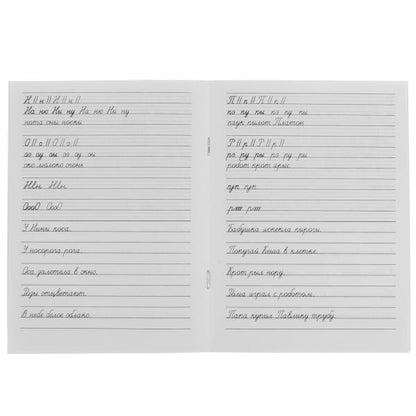 Н || н || Н || н ||
На ню Ни ну На ню Ни ну
нота оны носки
О || о || О || о ||
оо оу ои оо оу ои
око молоко окони
У Нины коса.
У носорога рога.
Оса залетела в окно.
Розы отцветают.
В небе белое облако.
П || п || П || п ||
па пу пы па пу пы
паук пилот Платон
Р || р || Р || р ||
ра ру ры ра ру ры
робот крот ирис
Бабушка испекла пироги.
Попугай Кеша в клетке.
Крот рыл нору.
Рома играл с роботом.
Папа купил Павлику трубу.